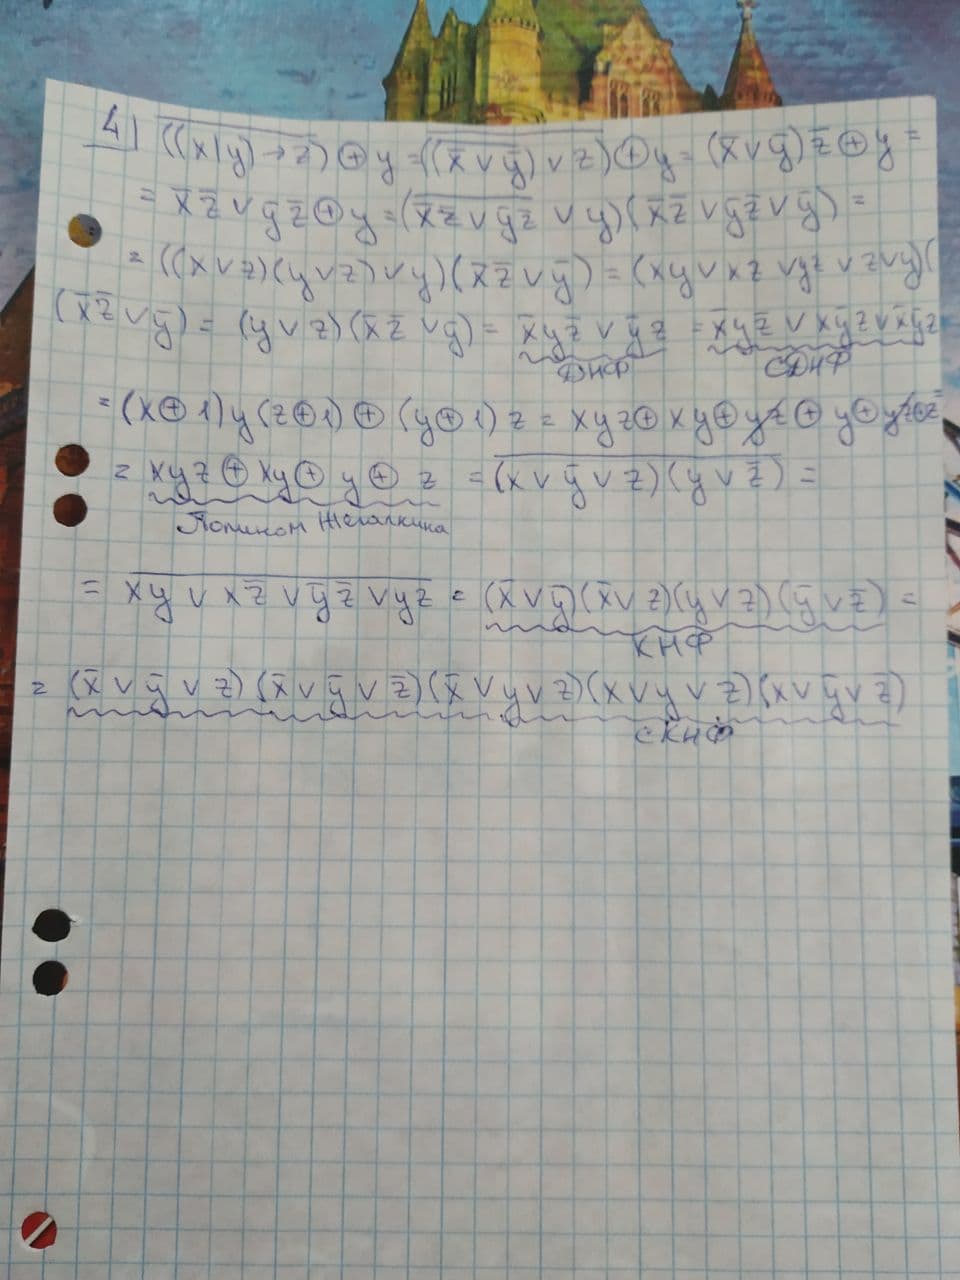 4) \overline{((x|y)→z)}⊕y=\overline{(\overline{(x̄∨ȳ)}∨z)}⊕y=(x̄∨ȳ)z̄⊕y=
=x̄z̄∨ȳz̄⊕y=(\overline{x̄z̄∨ȳz̄}∨y)(x̄z̄∨ȳz̄∨ȳ)=
=((x∨z)(y∨z)∨y)(x̄z̄∨ȳ)=(xy∨xz∨yz∨z∨y)(
(x̄z̄∨ȳ)=(y∨z)(x̄z̄∨ȳ)=x̄yz̄∨ȳz=x̄yz̄∨xȳz∨x̄ȳz
ДНФ СДНФ
=(x⊕1)y(z⊕1)⊕(y⊕1)z=xyz⊕xy⊕yz⊕y⊕yz⊕z=
=xyz⊕xy⊕y⊕z=\overline{(x∨ȳ∨z)(y∨z̄)}=
Полином Жегалкина
=\overline{xy∨xz̄∨ȳz̄∨yz}=(x̄∨ȳ)(x̄∨z)(y∨z)(ȳ∨z̄)=
КНФ
=(x̄∨ȳ∨z)(x̄∨ȳ∨z̄)(x̄∨y∨z)(x∨y∨z)(x∨ȳ∨z̄)
СКНФ